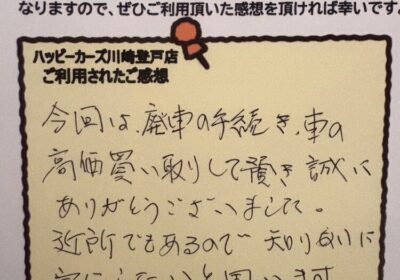 なりますので、ぜひご利用頂いた感想を頂ければ幸いです。
ハッピーカーズ川崎登戸店
ご利用されたご感想
今回は、廃車の手続き、車の
高価買い取りして頂き誠に
ありがとうございました。
近所でもあるので 知り合いに